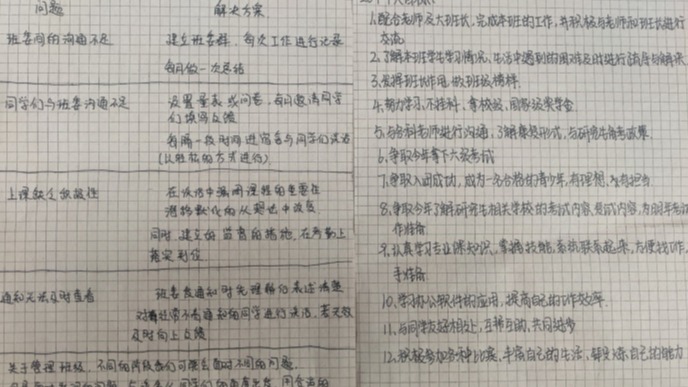 问题 解决方案
班委间的沟通不足 建立班委群，每次工作进行记录
每月做一次总结
同学们与班委沟通不足 设置量表或问卷，每月邀请同学
们填写反馈
每隔一段时间班委与同学们谈话
(以轻松的方式进行)
上课缺乏积极性 在谈话中强调课程的重要性
潜移默化的从思想中改变
同时，建立的监督的措施，在考勤上
落实到位
通知无法及时查看 班委发通知时先理解仔表述清楚
对经常不看通知的同学进行谈话，若无效
及时向上反馈
关于管理班级，不同的阶段我们可能会面对不同的问题
1.配合老师及大班长，完成本班的工作，并积极与老师和班长进行
交流
2.了解本班学生学习情况，生活中遇到的困难及时进行疏导与解决
3.发挥班长作用，做到班级榜样
4.努力学习，不挂科，拿校级，国家级奖学金
5.与各科老师进行沟通，了解集教形式，与研究生备考政策
6.争取今年拿下六级考试
7.争取入团成功，成为一名合格的青少年，有理想，有担当
8.争取今年了解研究生相关学校的考试内容，复试内容，为明年考试
作准备
9.认真学习专业课知识，掌握技能，系统联系起来，方便找工作
手准备
10.学习办公软件的应用，提高自己的工作效率
11.与同学友好相处，互帮互助，共同进步
12.积极参加各种比赛，丰富自己的生活，锻炼自己的能力